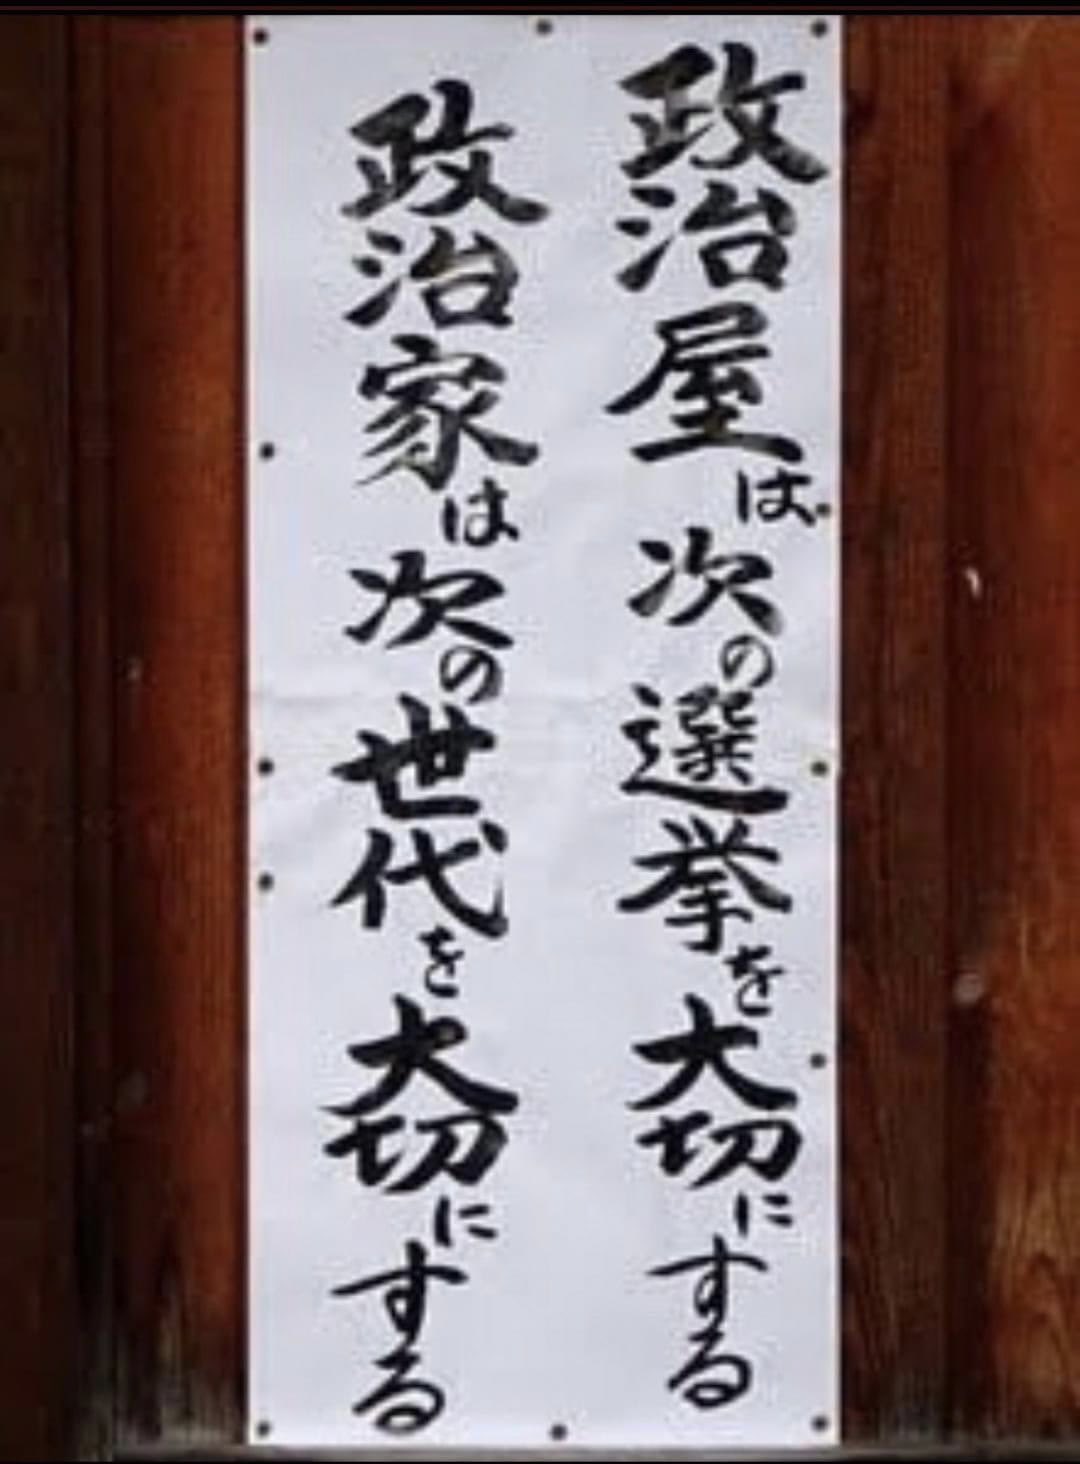 政治屋は次の選挙を大切にする
政治家は次の世代を大切にする